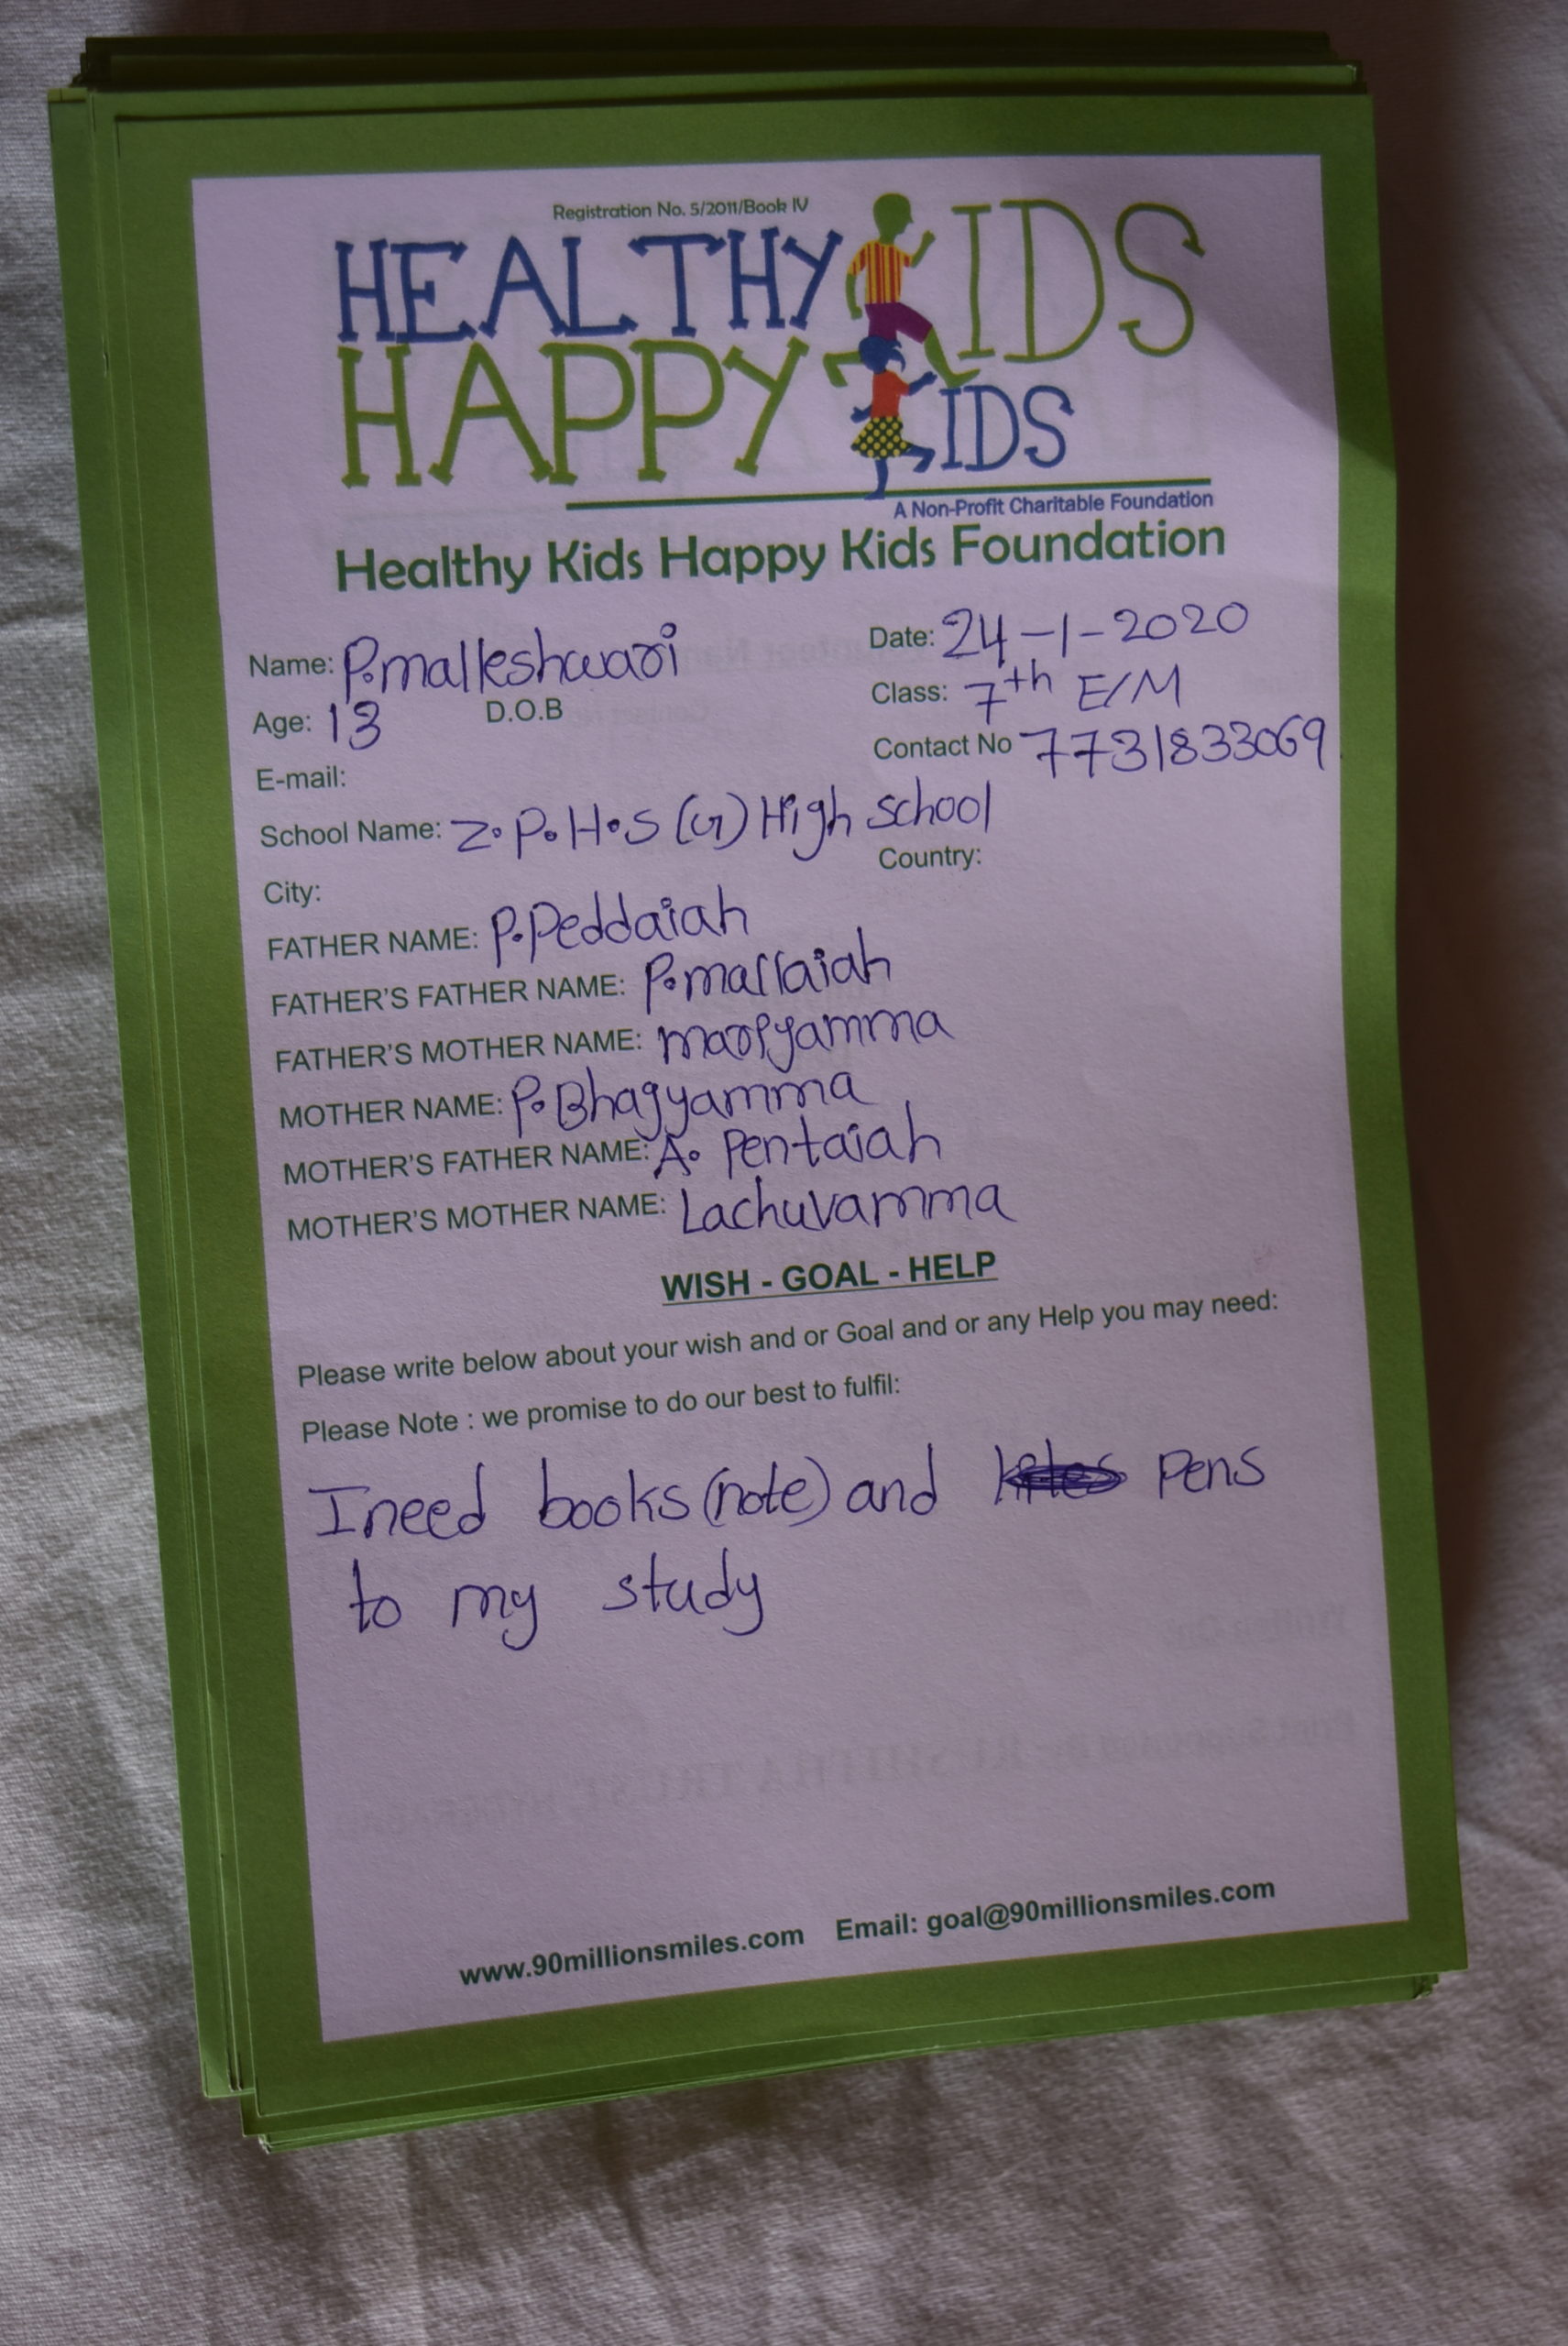 Registration No. 5/2011/Book IV
HEALTHY KIDS
HAPPY KIDS
A Non-Profit Charitable Foundation
Healthy Kids Happy Kids Foundation
Name: P.malleshwari Date: 24-1-2020
Age: 13 D.O.B Class: 7th E/M
E-mail: Contact No 7731833069
School Name: Z.P.H.S (G) High school
City: Country:
FATHER NAME: P.Peddaiah
FATHER'S FATHER NAME: P.mallaiah
FATHER'S MOTHER NAME: mariyamma
MOTHER NAME: P.Bhagyamma
MOTHER'S FATHER NAME: A. Pentaiah
MOTHER'S MOTHER NAME: Lachuvamma
WISH - GOAL - HELP
Please write below about your wish and or Goal and or any Help you may need:
Please Note : we promise to do our best to fulfil:
I need books (note) and Pens
to my study
www.90millionsmiles.com Email: goal@90millionsmiles.com